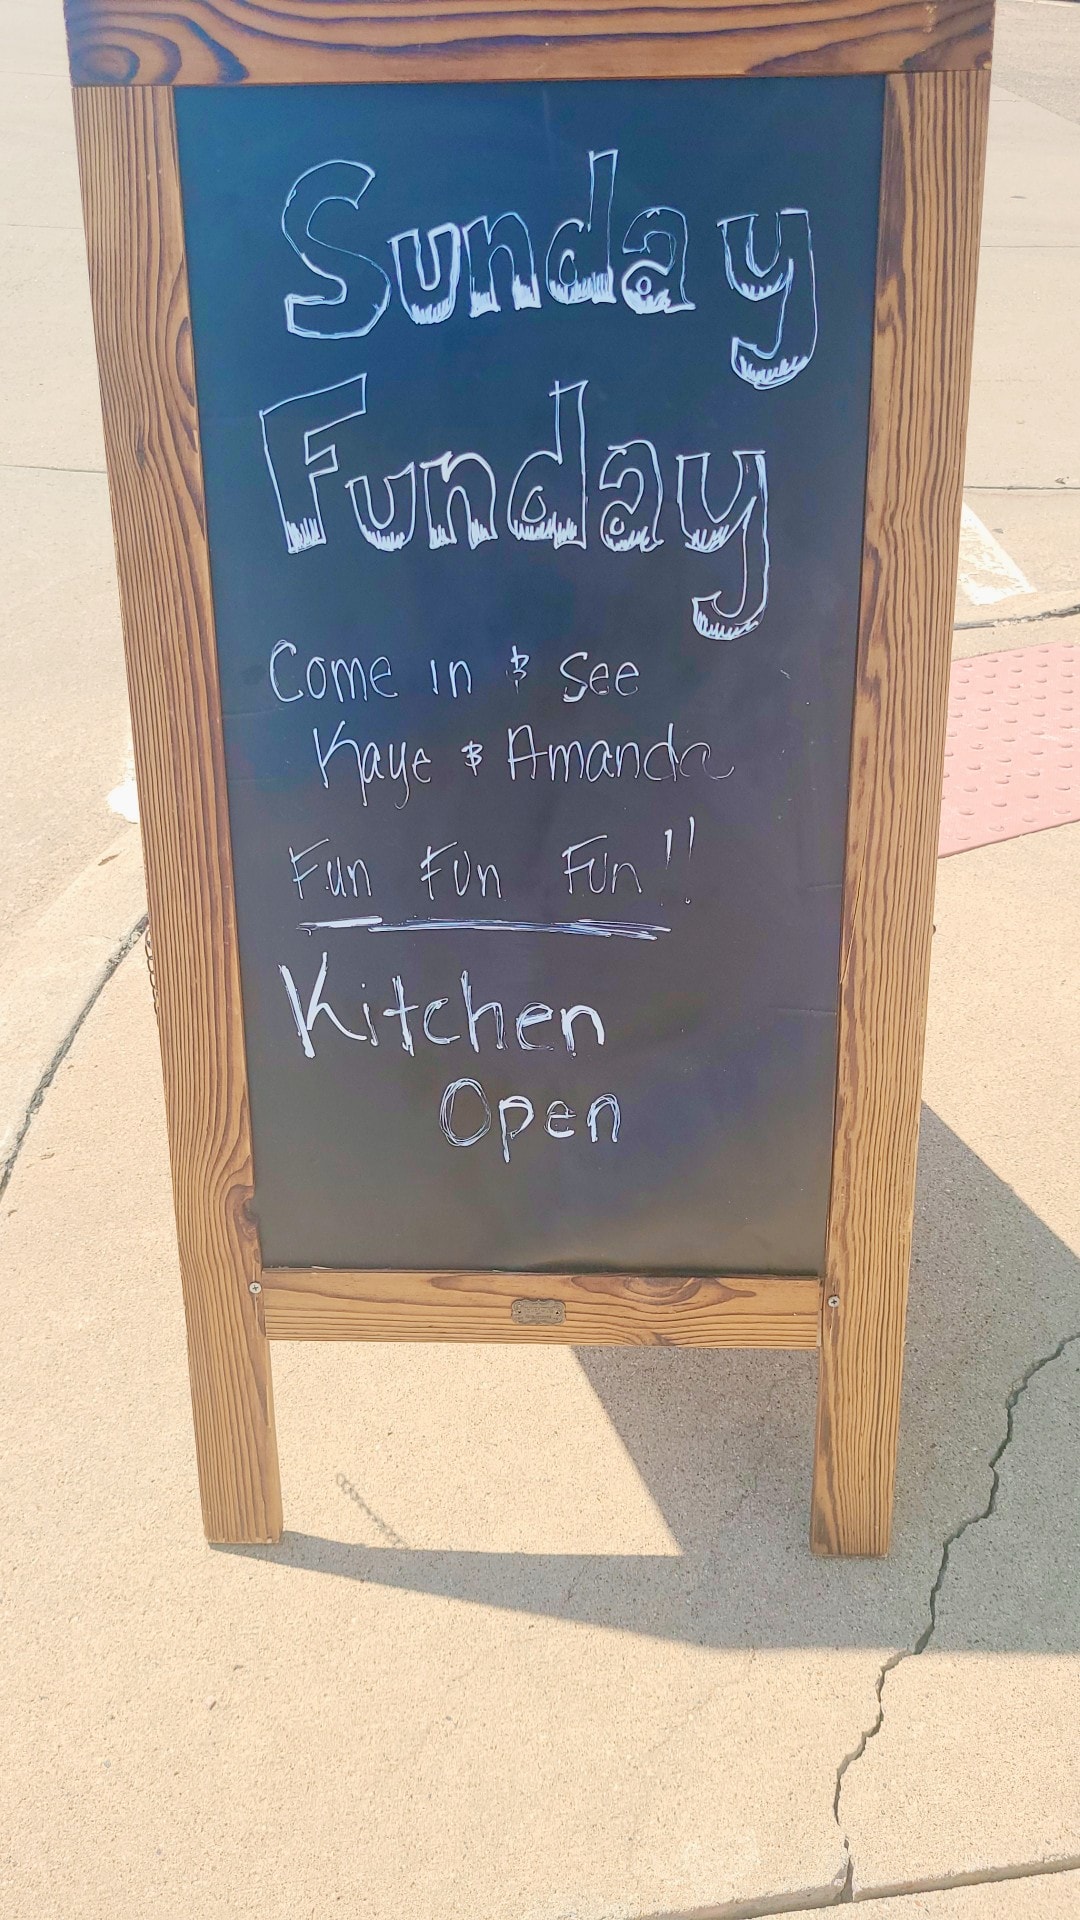 Sunday
Funday
Come in & see
Kaye & Amanda
Fun Fun Fun!!
Kitchen
Open